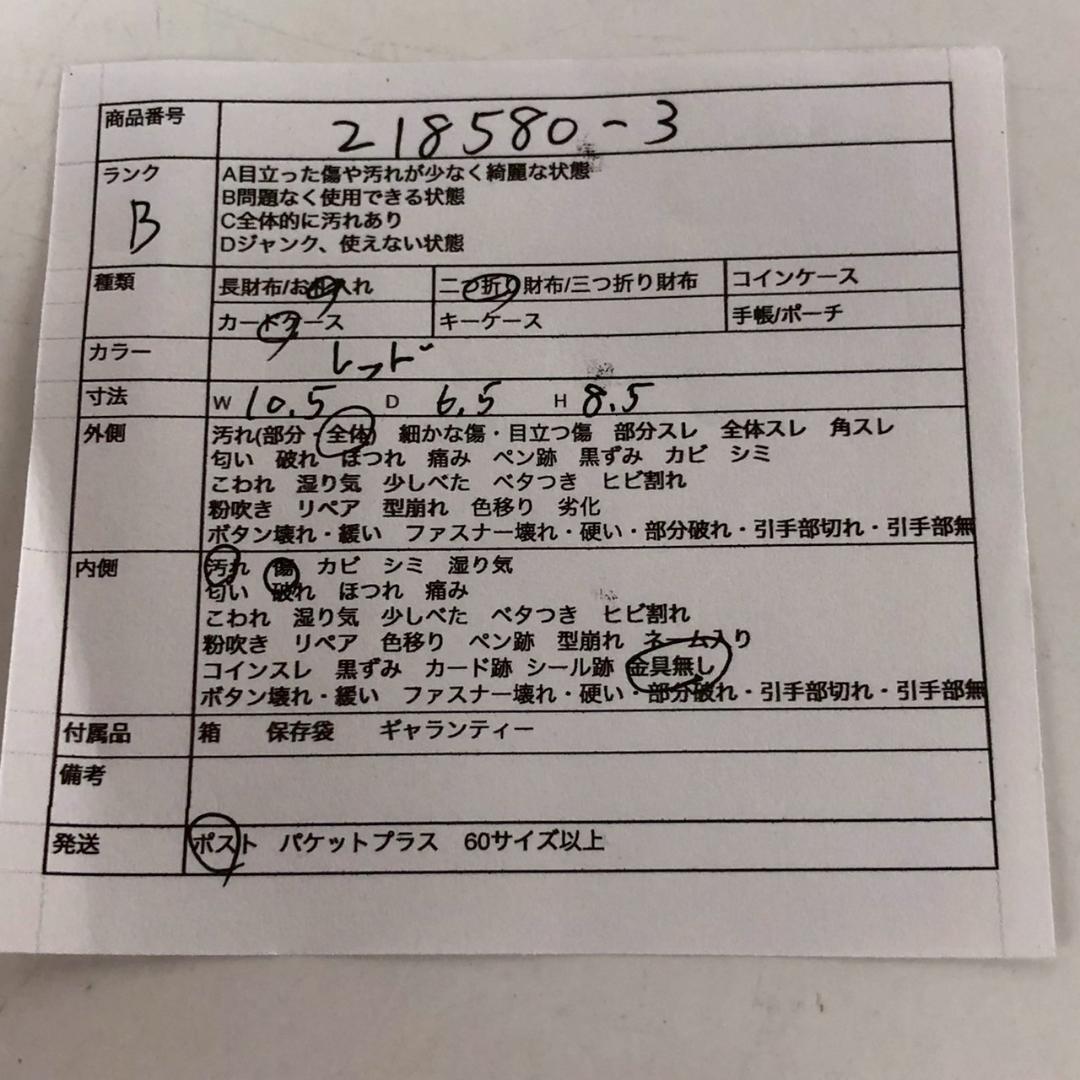 商品番号 218580-3
ランク B
A目立った傷や汚れが少なく綺麗な状態
B問題なく使用できる状態
C全体的に汚れあり
Dジャンク、使えない状態
種類 長財布/お札入れ 二つ折り財布/三つ折り財布 コインケース
カードケース キーケース 手帳/ポーチ
カラー レッド
寸法 W 10.5 D 6.5 H 8.5
外側 汚れ(部分・全体) 細かな傷・目立つ傷 部分スレ 全体スレ 角スレ
匂い 破れ ほつれ 痛み ペン跡 黒ずみ カビ シミ
こわれ 湿り気 少しべた ベタつき ヒビ割れ
粉吹き リペア 型崩れ 色移り 劣化
ボタン壊れ・緩い ファスナー壊れ・硬い・部分破れ・引手部切れ・引手部無
内側 汚れ 傷 カビ シミ 湿り気
匂い 破れ ほつれ 痛み
こわれ 湿り気 少しべた ベタつき ヒビ割れ
粉吹き リペア 色移り ペン跡 型崩れ ネーム入り
コインスレ 黒ずみ カード跡 シール跡 金具無し
ボタン壊れ・緩い ファスナー壊れ・硬い・部分破れ・引手部切れ・引手部無
付属品 箱 保存袋 ギャランティー
備考
発送 ポスト パケットプラス 60サイズ以上